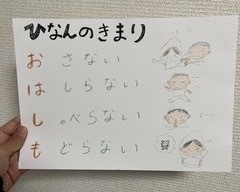 ひなんのきまり
お さない
は しらない
し ゃべらない
も どらない